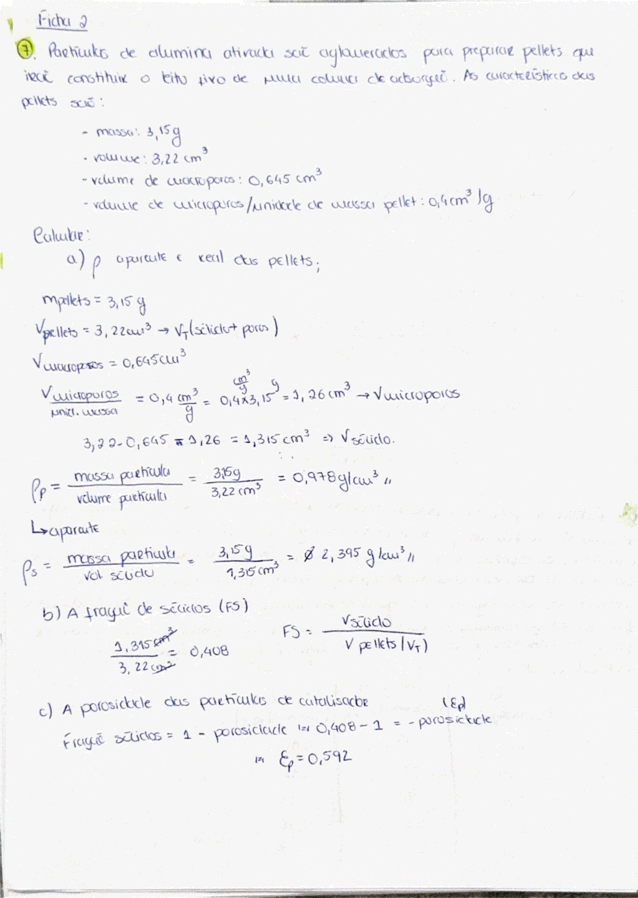 Ficha 2
7. Partículas de alumina ativada são aglomerados para preparar pellets que
irão constituir o leito fixo de uma coluna de adsorção. As características dos
pellets são:
- massa: 3,15g
- volume: 3,22 cm³
- volume de macroporos: 0,645 cm³
- volume de microporos/unidade de massa pellet: 0,4cm³/g
Calcular:
a) ρ aparente e real dos pellets;
mpellets = 3,15 g
Vpellets = 3,22cm³ → V_T (sólido + poros)
Vmacroporos = 0,645cm³
Vmicroporos / unid. massa = 0,4 cm³/g = 0,4 cm³/g × 3,15 g = 1,26 cm³ → Vmicroporos
3,22 - 0,645 - 1,26 = 1,315 cm³ => Vsólido.
ρp = massa partícula / volume partícula = 3,15g / 3,22 cm³ = 0,978 g/cm³ //
↳ aparente
ρs = massa partícula / vol sólido = 3,15g / 1,315cm³ = 2,395 g/cm³ //
b) A fração de sólidos (FS)
1,315 cm³ / 3,22 cm³ = 0,408 FS = Vsólido / V pellets (V_T)
c) A porosidade das partículas de catalisador (εp)
Fração sólidos = 1 - porosidade (=) 0,408 - 1 = - porosidade
(=) εp = 0,592